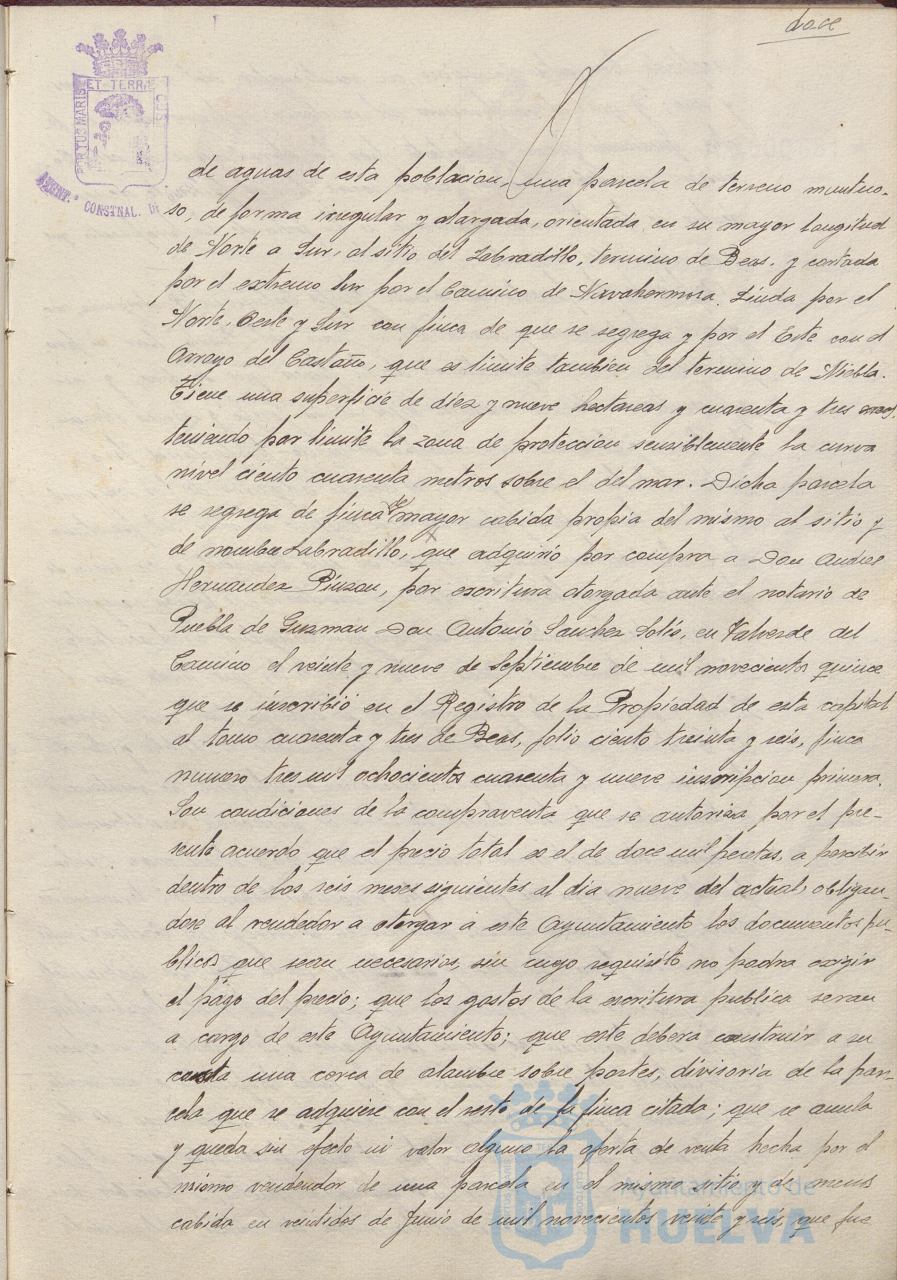 doce
PORTUS MARIS ET TERRÆ CUSTODIA
AYUNT.º CONSTNAL. DE
de aguas de esta poblacion, una parcela de terreno montuo-
so, de forma irregular y alargada, orientada en su mayor longitud
de Norte a Sur, al sitio del Labradillo, termino de Beas, y cortada
por el extremo Sur por el Camino de Navahermosa. Linda por el
Norte, Oeste y Sur con finca de que se segrega y por el Este con el
Arroyo del Castaño, que es limite también del termino de Niebla.
Tiene una superficie de diez y nueve hectareas y cuarenta y tres areas,
teniendo por limite la zona de proteccion sensiblemente la curva
nivel ciento cuarenta metros sobre el del mar. Dicha parcela
se segrega de finca de mayor cabida propia del mismo al sitio y
de nombre Labradillo, que adquirio por compra a Don Andres
Hernandez Pinzon, por escritura otorgada ante el notario de
Puebla de Guzman Don Antonio Sanchez Solis, en Valverde del
Camino el veinte y nueve de Septiembre de mil novecientos quince
que se inscribió en el Registro de la Propiedad de esta capital
al tomo cuarenta y tres de Beas, folio ciento treinta y seis, finca
numero tres mil ochocientos cuarenta y nueve inscripcion primera.
Son condiciones de la compraventa que se autoriza por el pre-
sente acuerdo que el precio total es el de doce mil pesetas, a percibir
dentro de los seis meses siguientes al dia nueve del actual, obligan-
dose al vendedor a otorgar a este Ayuntamiento los documentos pu-
blicos que sean necesarios, sin cuyo requisito no podra exigir
el pago del precio; que los gastos de la escritura publica seran
a cargo de este Ayuntamiento; que este debera construir a su
costa una cerca de alambre sobre postes, divisoria de la par-
cela que se adquiere con el resto de la finca citada; que se anula
y queda sin efecto ni valor alguno la oferta de venta hecha por el
mismo vendedor de una parcela en el mismo sitio y de menos
cabida en veintidos de Junio de mil novecientos veinte y seis, que fue
Ayuntamiento de
HUELVA